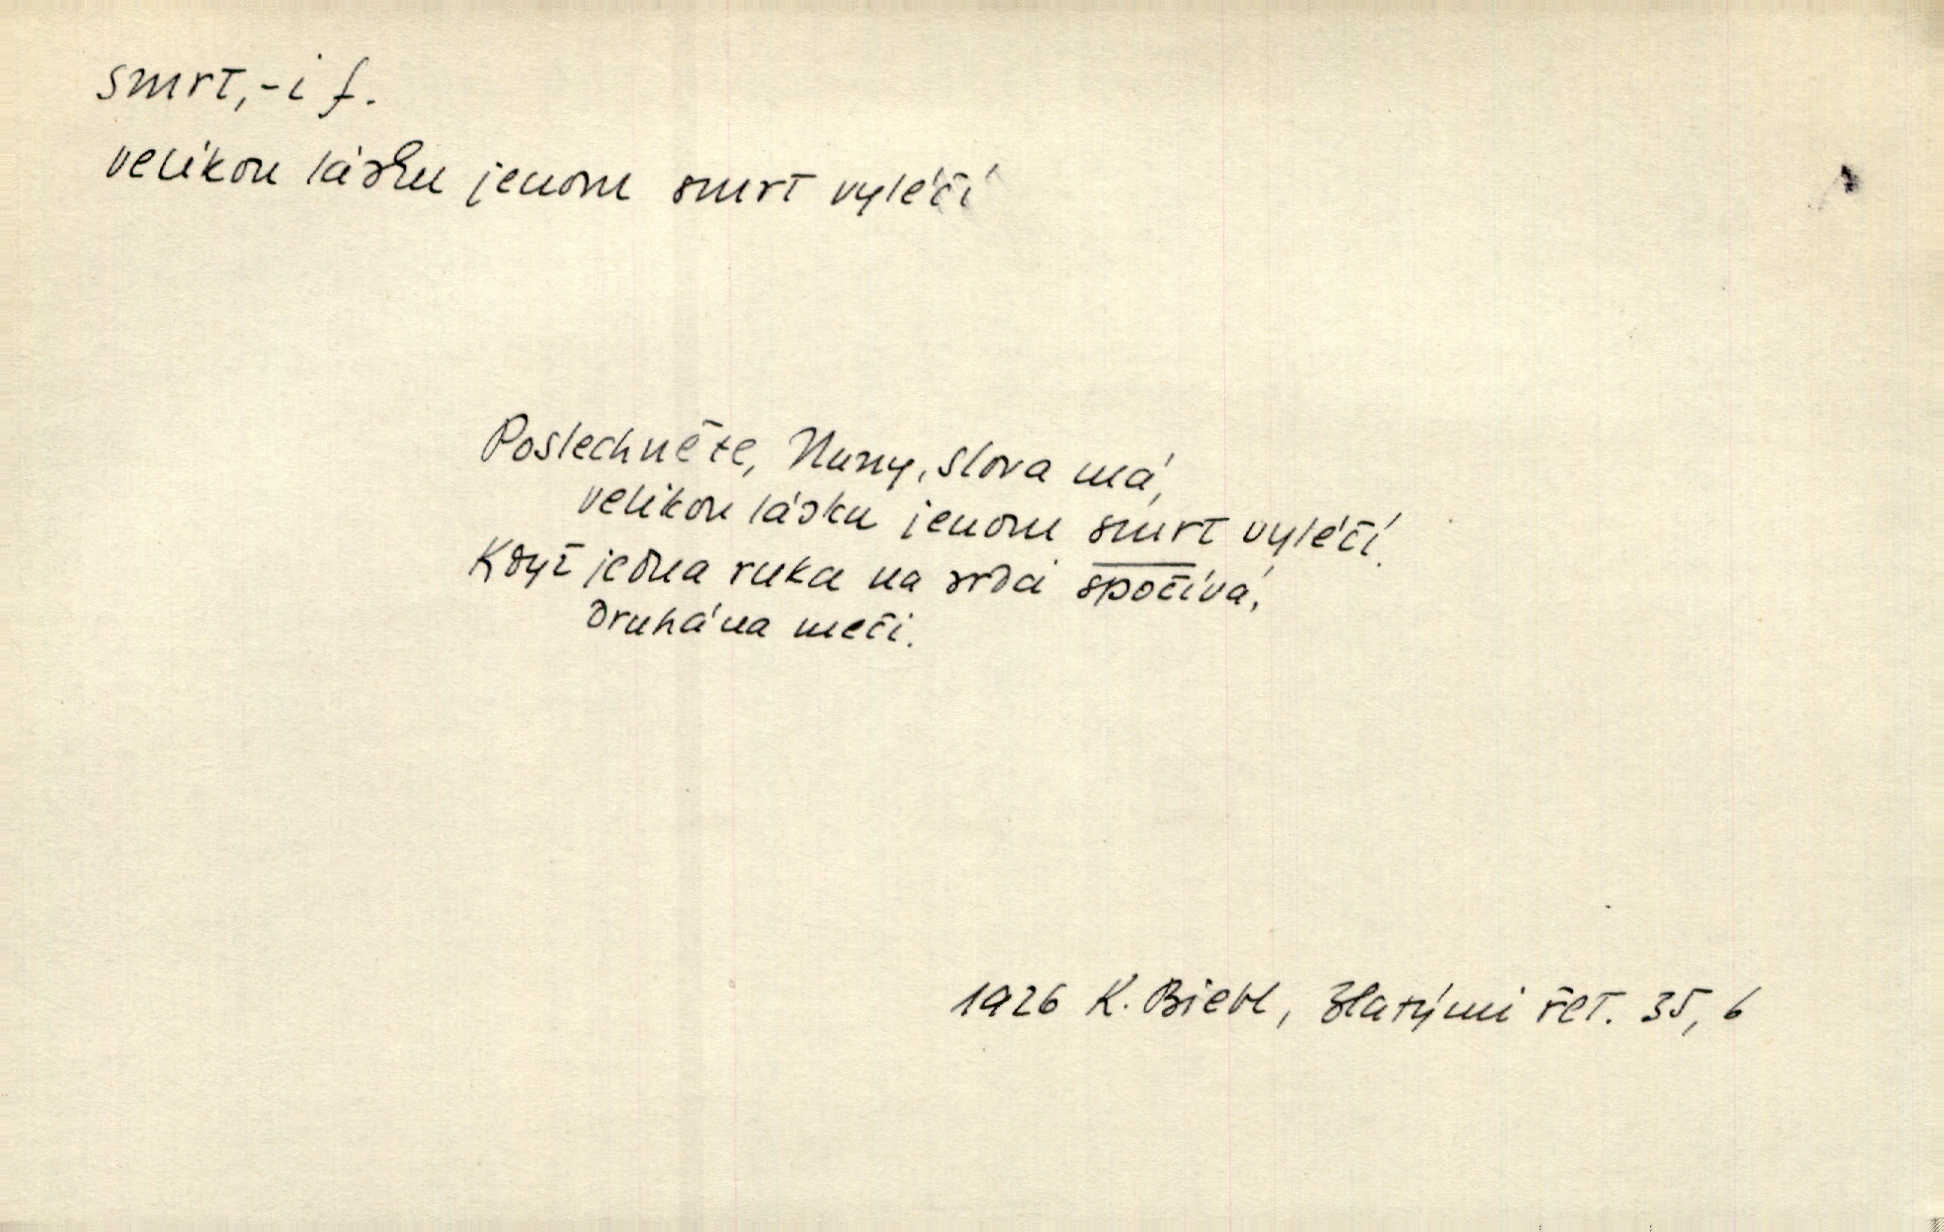 smrt, -i f.
velikou lásku jenom smrt vyléčí
Poslechněte, Huny, slova má,
velikou lásku jenom smrt vyléčí.
Když jedna ruka na srdci spočívá,
druhá na meči.
1926 K. Biebl, Zlatými řet. 35, 6